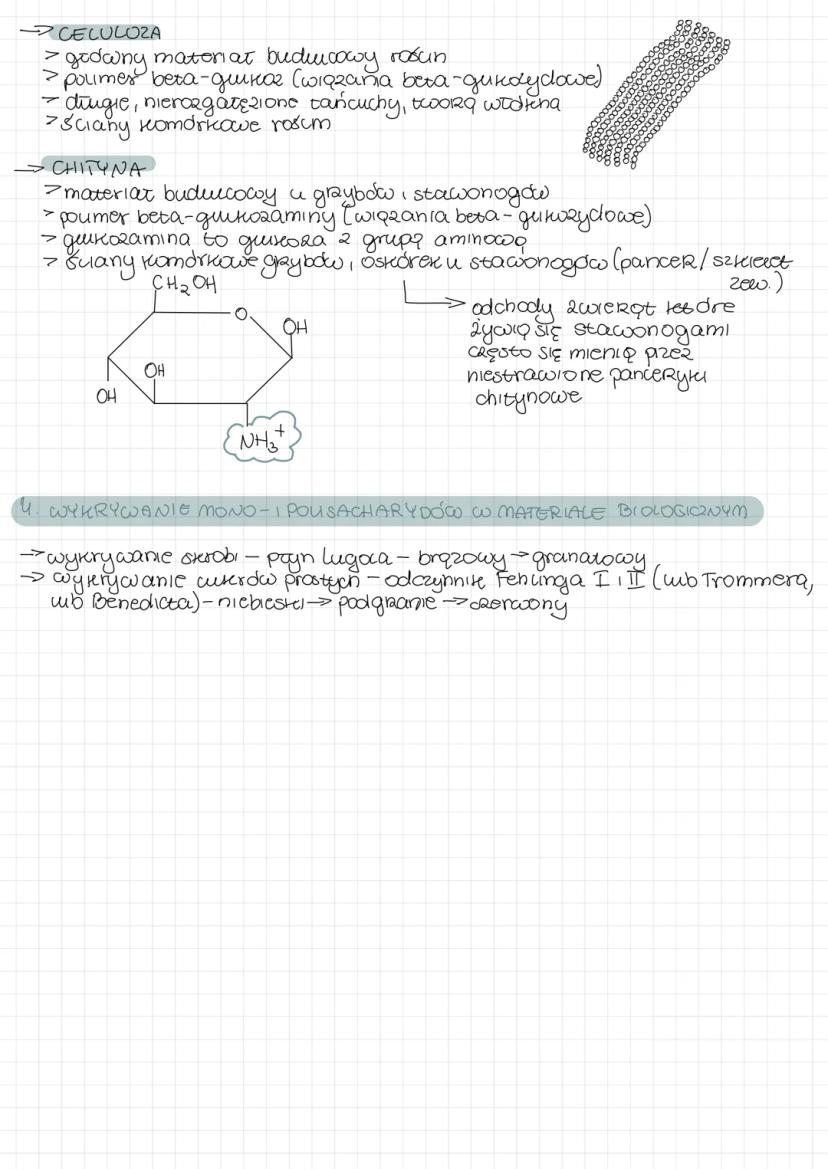 → CELULOZA
> główny materiał budulcowy roślin
> polimer beta-glukoz (wiązania beta-glikozydowe)
> długie, nierozgałęzione łańcuchy, tworzą włókna
> ściany komórkowe roślin
→ CHITYNA
> materiał budulcowy u grzybów i stawonogów
> polimer beta-glukozaminy (wiązania beta-glikozydowe)
> glukozamina to glukoza z grupą aminową
> ściany komórkowe grzybów, oskórek u stawonogów (pancerz/szkielet
zew.)
CH₂OH
O
OH
OH
OH
NH₃⁺
→ odchody zwierząt które
żywią się stawonogami
często się mienią przez
niestrawione pancerzyki
chitynowe
4. WYKRYWANIE MONO- I POLISACHARYDÓW W MATERIALE BIOLOGICZNYM
→ wykrywanie skrobi – płyn Lugola – brązowy → granatowy
→ wykrywanie cukrów prostych – odczynnik Fehlinga I i II (lub Trommera,
lub Benedicta) – niebieski → podgrzanie → czerwony